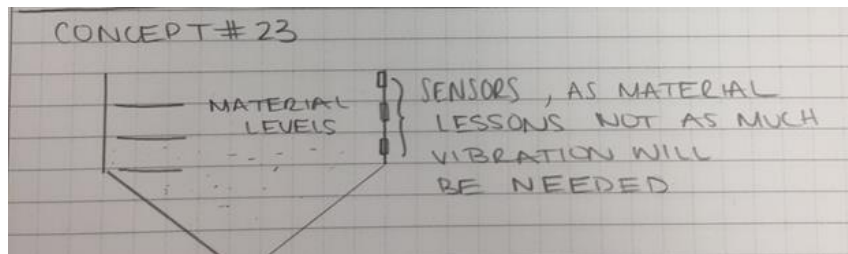 CONCEPT # 23
MATERIAL
LEVELS
SENSORS, AS MATERIAL
LESSONS NOT AS MUCH
VIBRATION WILL
BE NEEDED